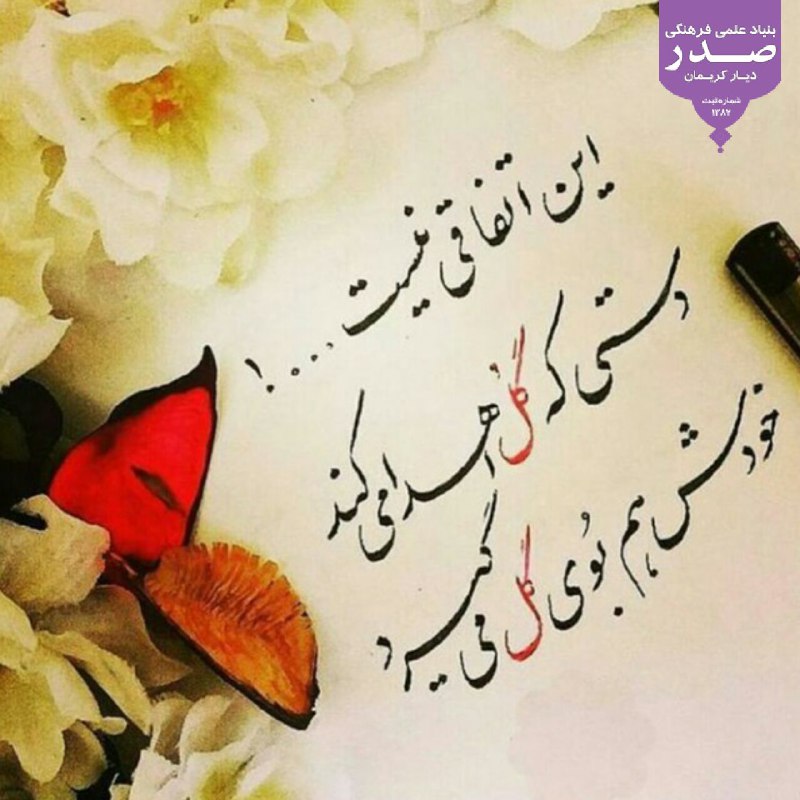 بنیاد علمی فرهنگی
صدر
دیار کریمان
شماره ثبت
۱۳۸۲
این اتفاقی نیست....!
دستی که گل اهدا می کند
خودش هم بُوی گل می گیرد